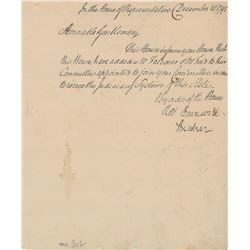 In the House of Representatives December 10 1795
Honorable Gentlemen
This House inform your House that
this House have added Mr Falconer & Mr Ford to their
Committee appointed to join your Committee
to revise the Judiciary System of this State
By order of the House
Robt Barnwell
Speaker